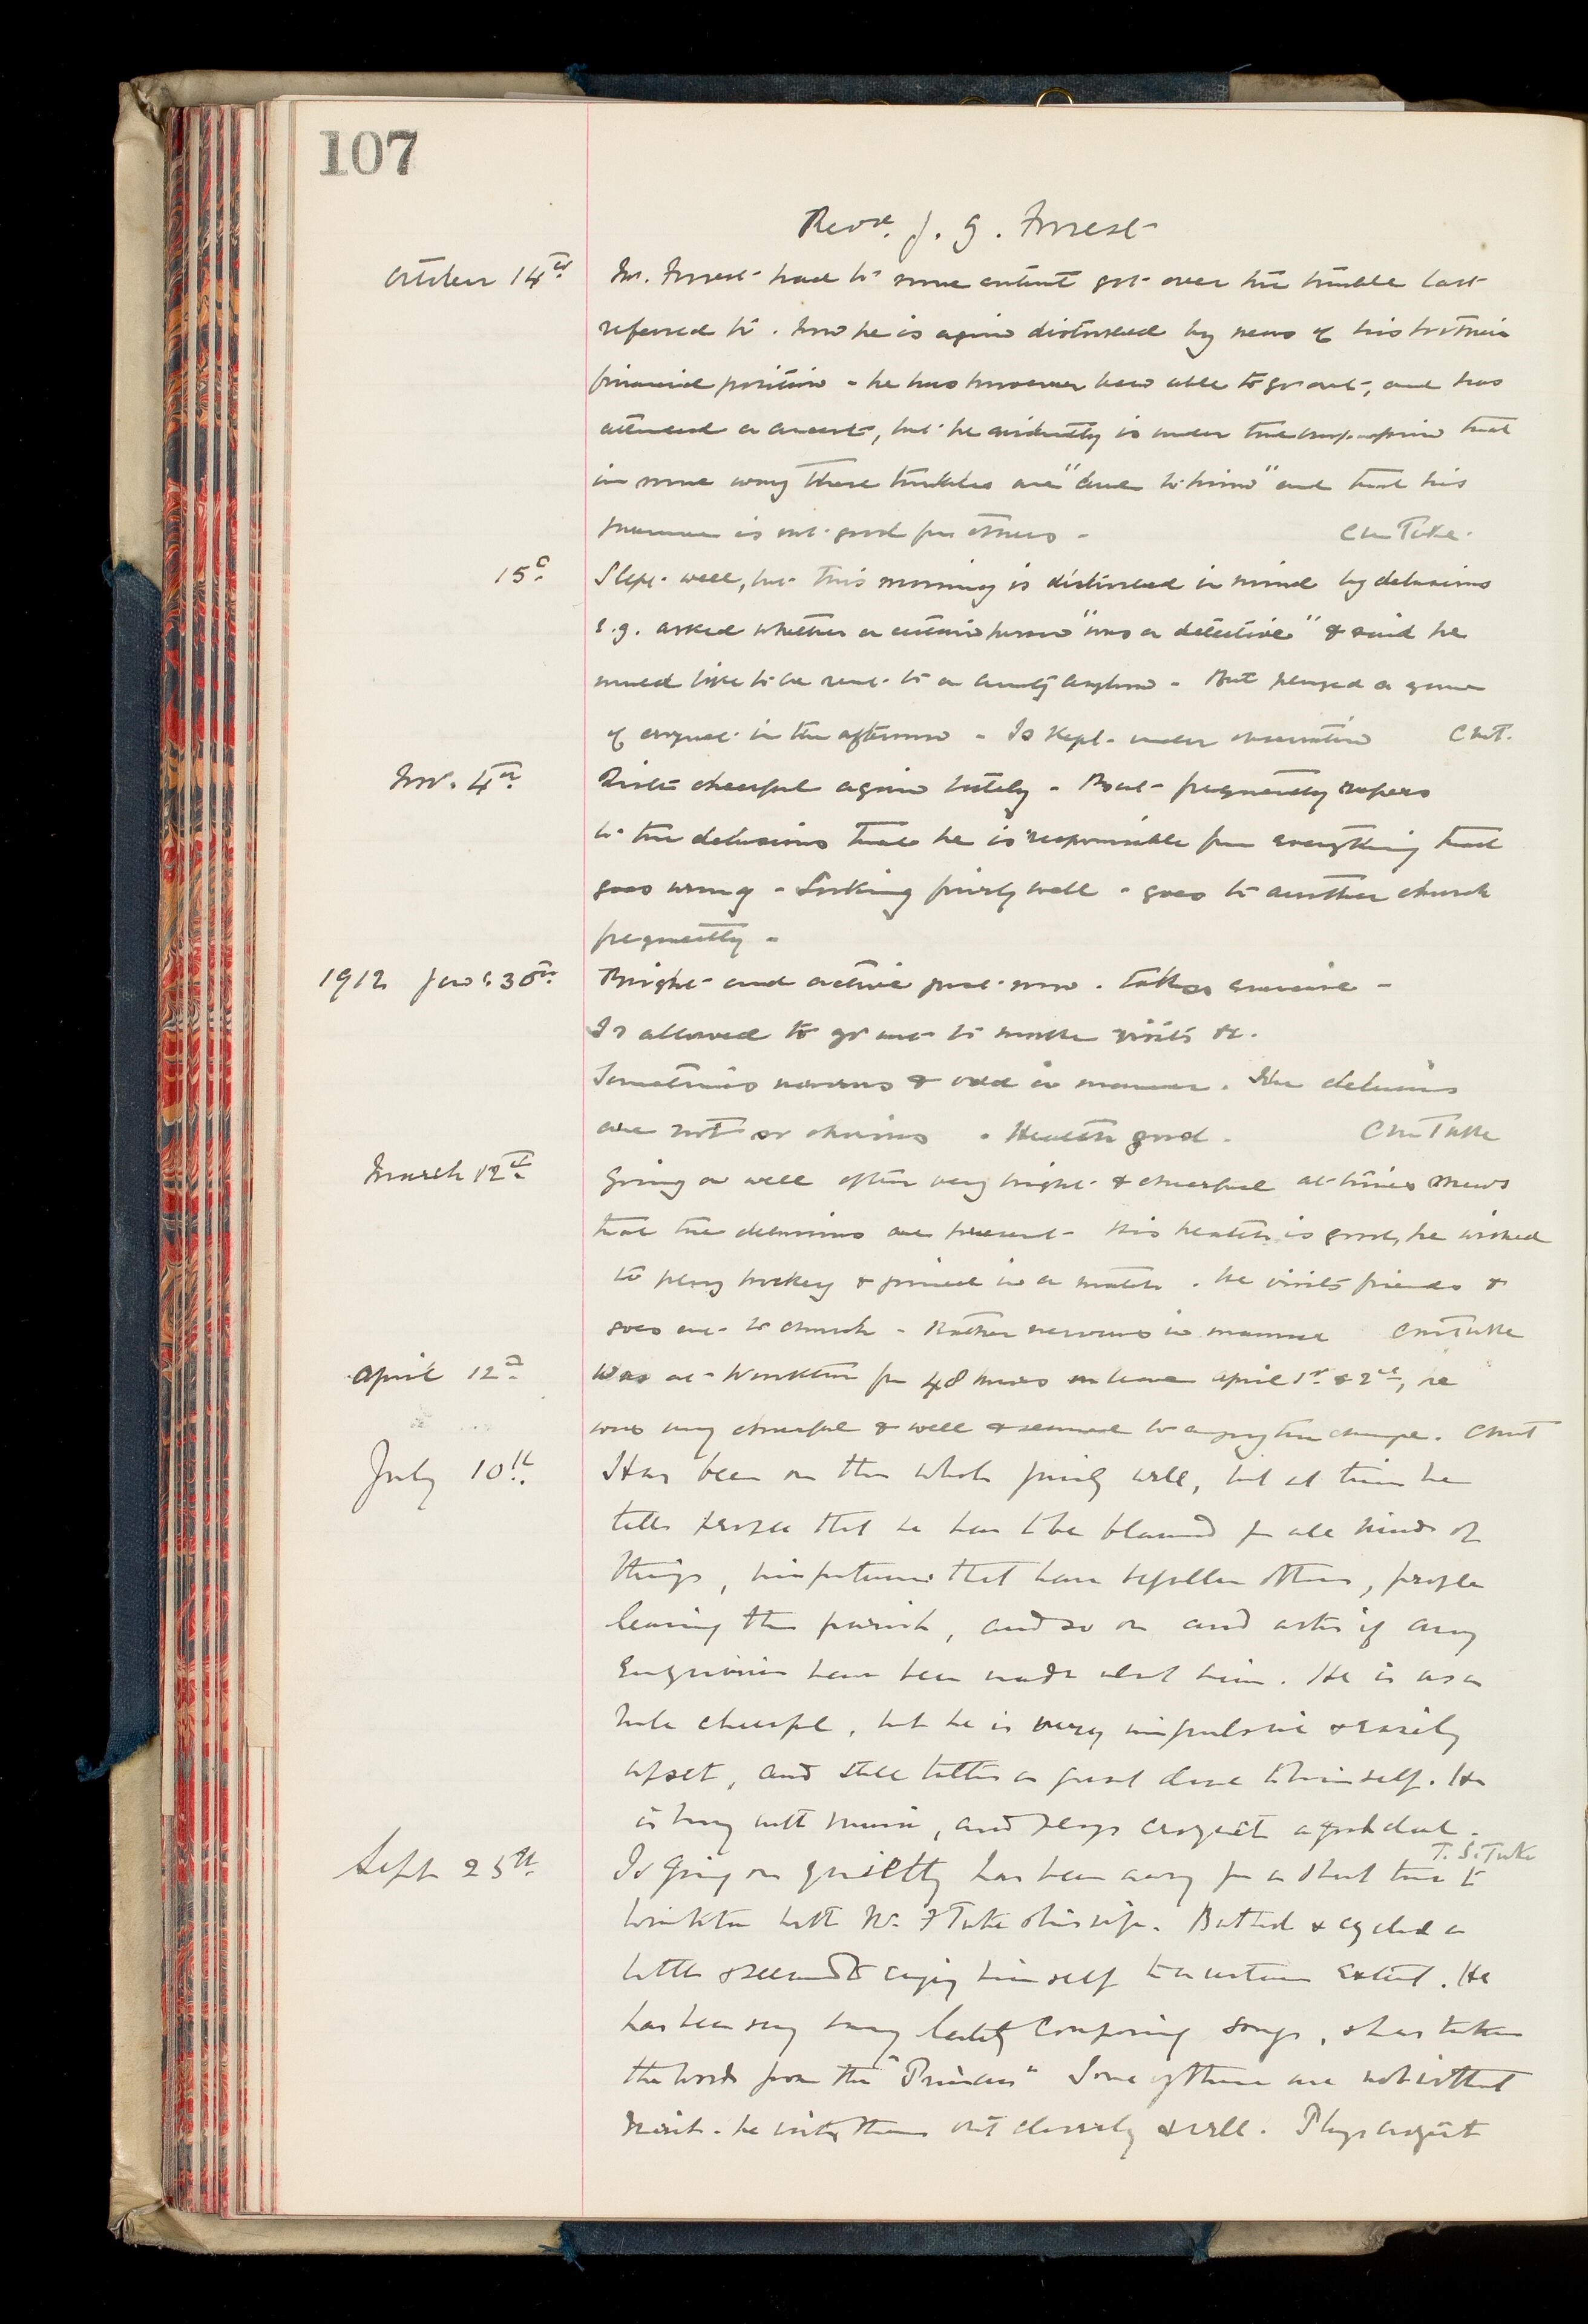 107
Revd. J. G. Forrest
October 14th Mr. Forrest had to some extent got over the trouble last
referred to. Now he is again disturbed by news of his brother's
financial position - he has however been able to go out, and has
attended a concert, but he evidently is under the impression that
in some way these troubles are "due to him" and that his
presence is not good for others - CMTuke.
15th Slept well, but this morning is disturbed in mind by delusions
e.g. asked whether a certain person "was a detective" & said he
would like to be sent to a county asylum - But played a game
of croquet in the afternoon - Is kept under observation CMT.
Nov. 4th Quite cheerful again lately - But frequently refers
to the delusions that he is responsible for everything that
goes wrong - Looking fairly well - goes to another church
frequently -
1912 Jan: 30th Bright and active just now. takes exercise -
Is allowed to go out to make visits &c.
Sometimes nervous & odd in manner. The delusions
are not so obvious . Health good. CMTuke
March 12th Going on well often very bright & cheerful at times shews
that the delusions are present - His health is good, he wished
to play hockey & joined in a match. he visits friends &
goes out to church - Rather nervous in manner CMTuke
April 12th Was at Winkton for 48 hours on leave April 1st & 2nd, he
was very cheerful & well & seemed to enjoy the change. CMT
July 10th Has been on the whole fairly well, but at times he
tells people that he has to be blamed for all kinds of
things, misfortunes that have befallen others, people
leaving the parish, and so on and asks if any
enquiries have been made about him. He is as a
rule cheerful, but he is very impulsive & easily
upset, and still talks a great deal to himself. He
is busy with music, and plays croquet a good deal.
T. S. Tuke
Sept 25th Is going on quietly has been away for a short time to
Winkton with Mr. F Tuke & his wife. Bathed & cycled a
little & seemed to enjoy himself to a certain extent. He
has been very busy lately composing songs, & has taken
the words from the "Princess" Some of them are not without
merit - he writes them out cleverly & well. Plays croquet